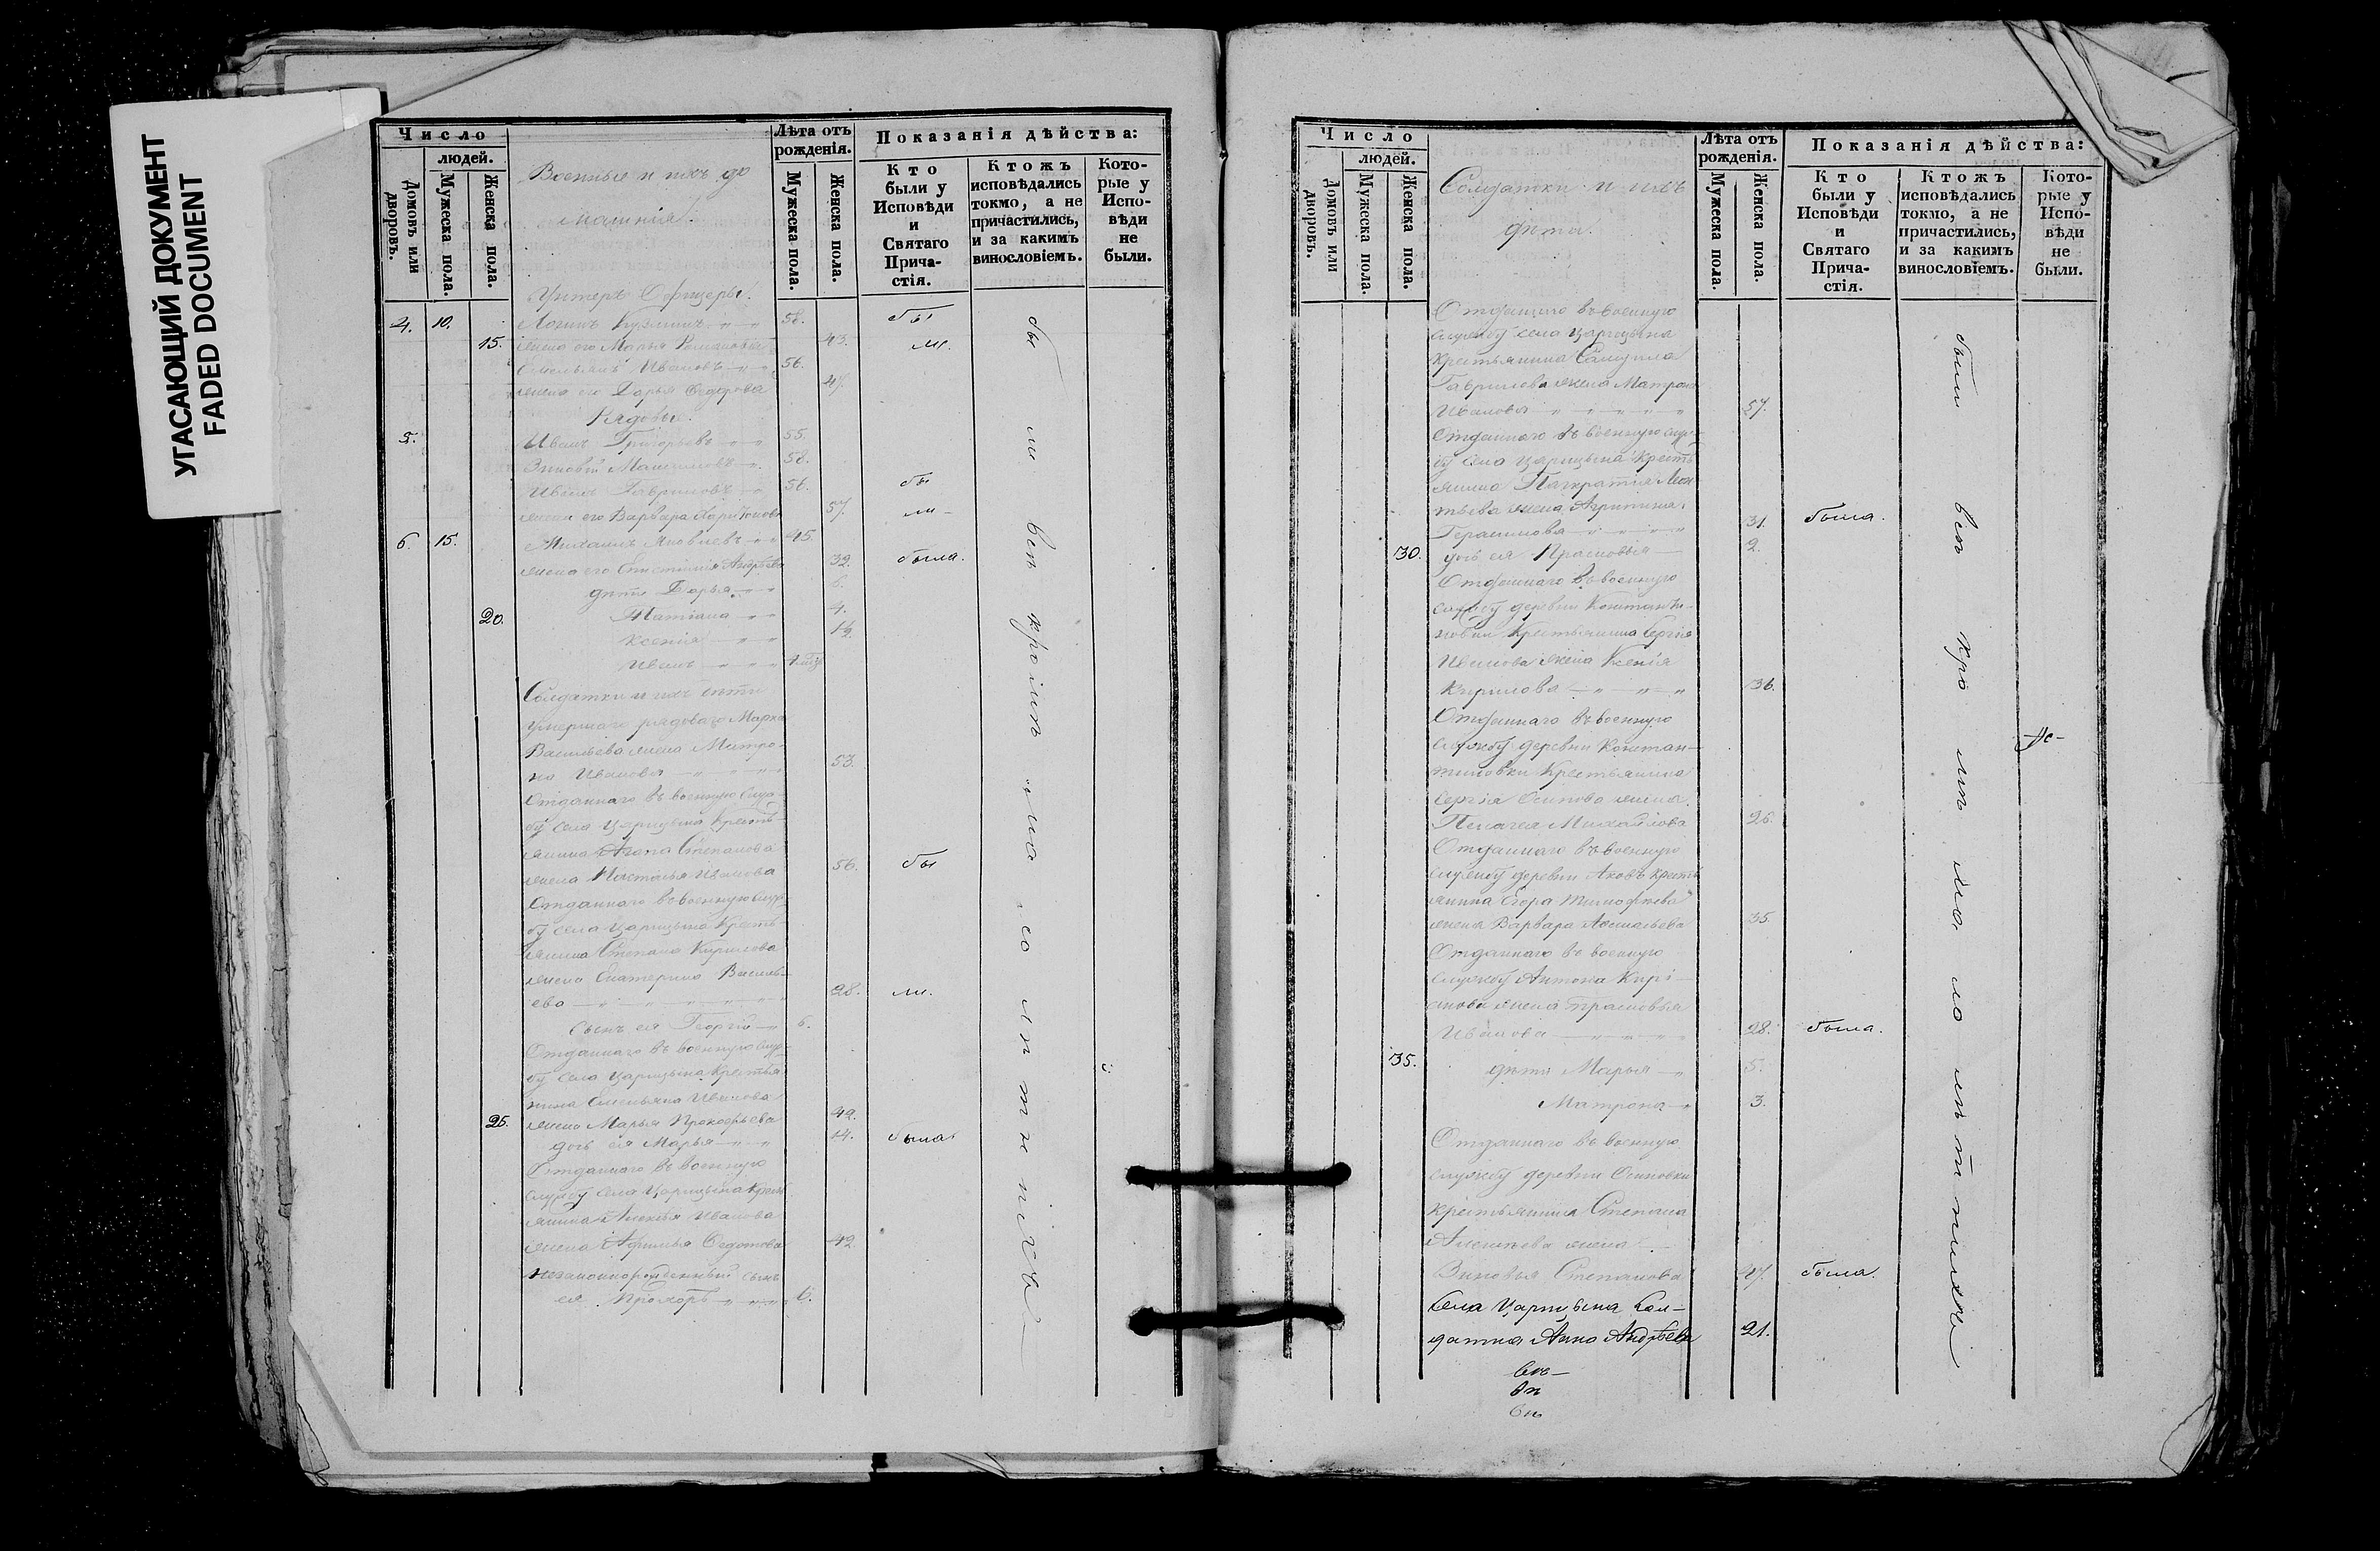 УГАСАЮЩИЙ ДОКУМЕНТ
FADED DOCUMENT
Число
людей.
Домовъ или дворовъ.
Мужеска пола.
Женска пола.
Военные и ихъ до
машнія.
Лѣта отъ рожденія.
Мужеска пола.
Женска пола.
Показанія дѣйства:
Кто были у Исповѣди и Святаго Причастія.
Ктожъ исповѣдались токмо, а не причастились, и за какимъ винословіемъ.
Которые у Исповѣди не были.
Унтеръ Офицеры.
4. 10. Логинъ Кузминъ 58. бы
15. жена его Марья Романова 43. ли.
Емельянъ Ивановъ 56.
жена его Дарья Ѳедорова 47.
Рядовые.
5. Иванъ Григорьевъ 55.
Зиновій Максимовъ 58.
Иванъ Гавриловъ 56. бы
жена его Варвара Харитонова 57. ли
6. 15. Михаилъ Яковлевъ 45.
жена его Андрѣева 32. была.
дѣти Дарья 6.
20. Татіана 4.
Ксенія
Иванъ
Солдатки и ихъ дѣти
умершаго рядоваго Марка
Васильева жена Матро-
на Иванова 53.
Отданнаго въ военную служ-
бу села Царицына кресть-
янина Агапа Степанова
жена Наталья Иванова 56. бы
Отданнаго въ военную служ-
бу села Царицына кресть-
янина Степана Кирилова
жена Екатерина Василь-
ева 28. ли.
сынъ ея Георгій 6.
Отданнаго въ военную служ-
бу села Царицына крестья-
нина Емельяна Иванова
25. жена Марья Прокофьева 42.
дочь ея Марья 14. была.
Отданнаго въ военную
службу села Царицына крест
янина Алексѣя Иванова
жена Афимья Ѳедотова 42
незаконнорожденный сынъ
ея Прохоръ 6.
бы ли всѣ кромѣ
Число
людей.
Домовъ или дворовъ.
Мужеска пола.
Женска пола.
Солдатки и ихъ
дѣти.
Лѣта отъ рожденія.
Мужеска пола.
Женска пола.
Показанія дѣйства:
Кто были у Исповѣди и Святаго Причастія.
Ктожъ исповѣдались токмо, а не причастились, и за какимъ винословіемъ.
Которые у Исповѣди не были.
Отданнаго въ военную
службу села Царицына
крестьянина Самуила
Гаврилова жена Матрона
Иванова 57.
Отданнаго въ военную служ-
бу села Царицына кресть
янина Панкратія Леон
тьева жена Агрипина
Герасимова 31. была.
30. дочь ея Прасковія 2.
Отданнаго въ военную
службу деревни Константи-
новки крестьянина Сергія
Иванова жена Ксенія
Кирилова 36.
Отданнаго въ военную
службу деревни Констан-
тиновки крестьянина
Сергія Осипова жена
Пелагея Михайлова 26.
Отданнаго въ военную
службу деревни кресть
янина Егора Тимофѣева
жена Варвара 35.
Отданнаго въ военную
службу Антона Кирі-
анова жена Прасковья
Иванова 28. была.
35. дѣти Марья 5.
Матрона 3.
Отданнаго въ военную
службу деревни Осиновки
крестьянина Степана
Алексѣева жена
Зиновья Степанова 47. была.
Села Царицына Сол-
датка Анна Андрѣева 21.
были всѣ кро мѣ мало лѣтнихъ